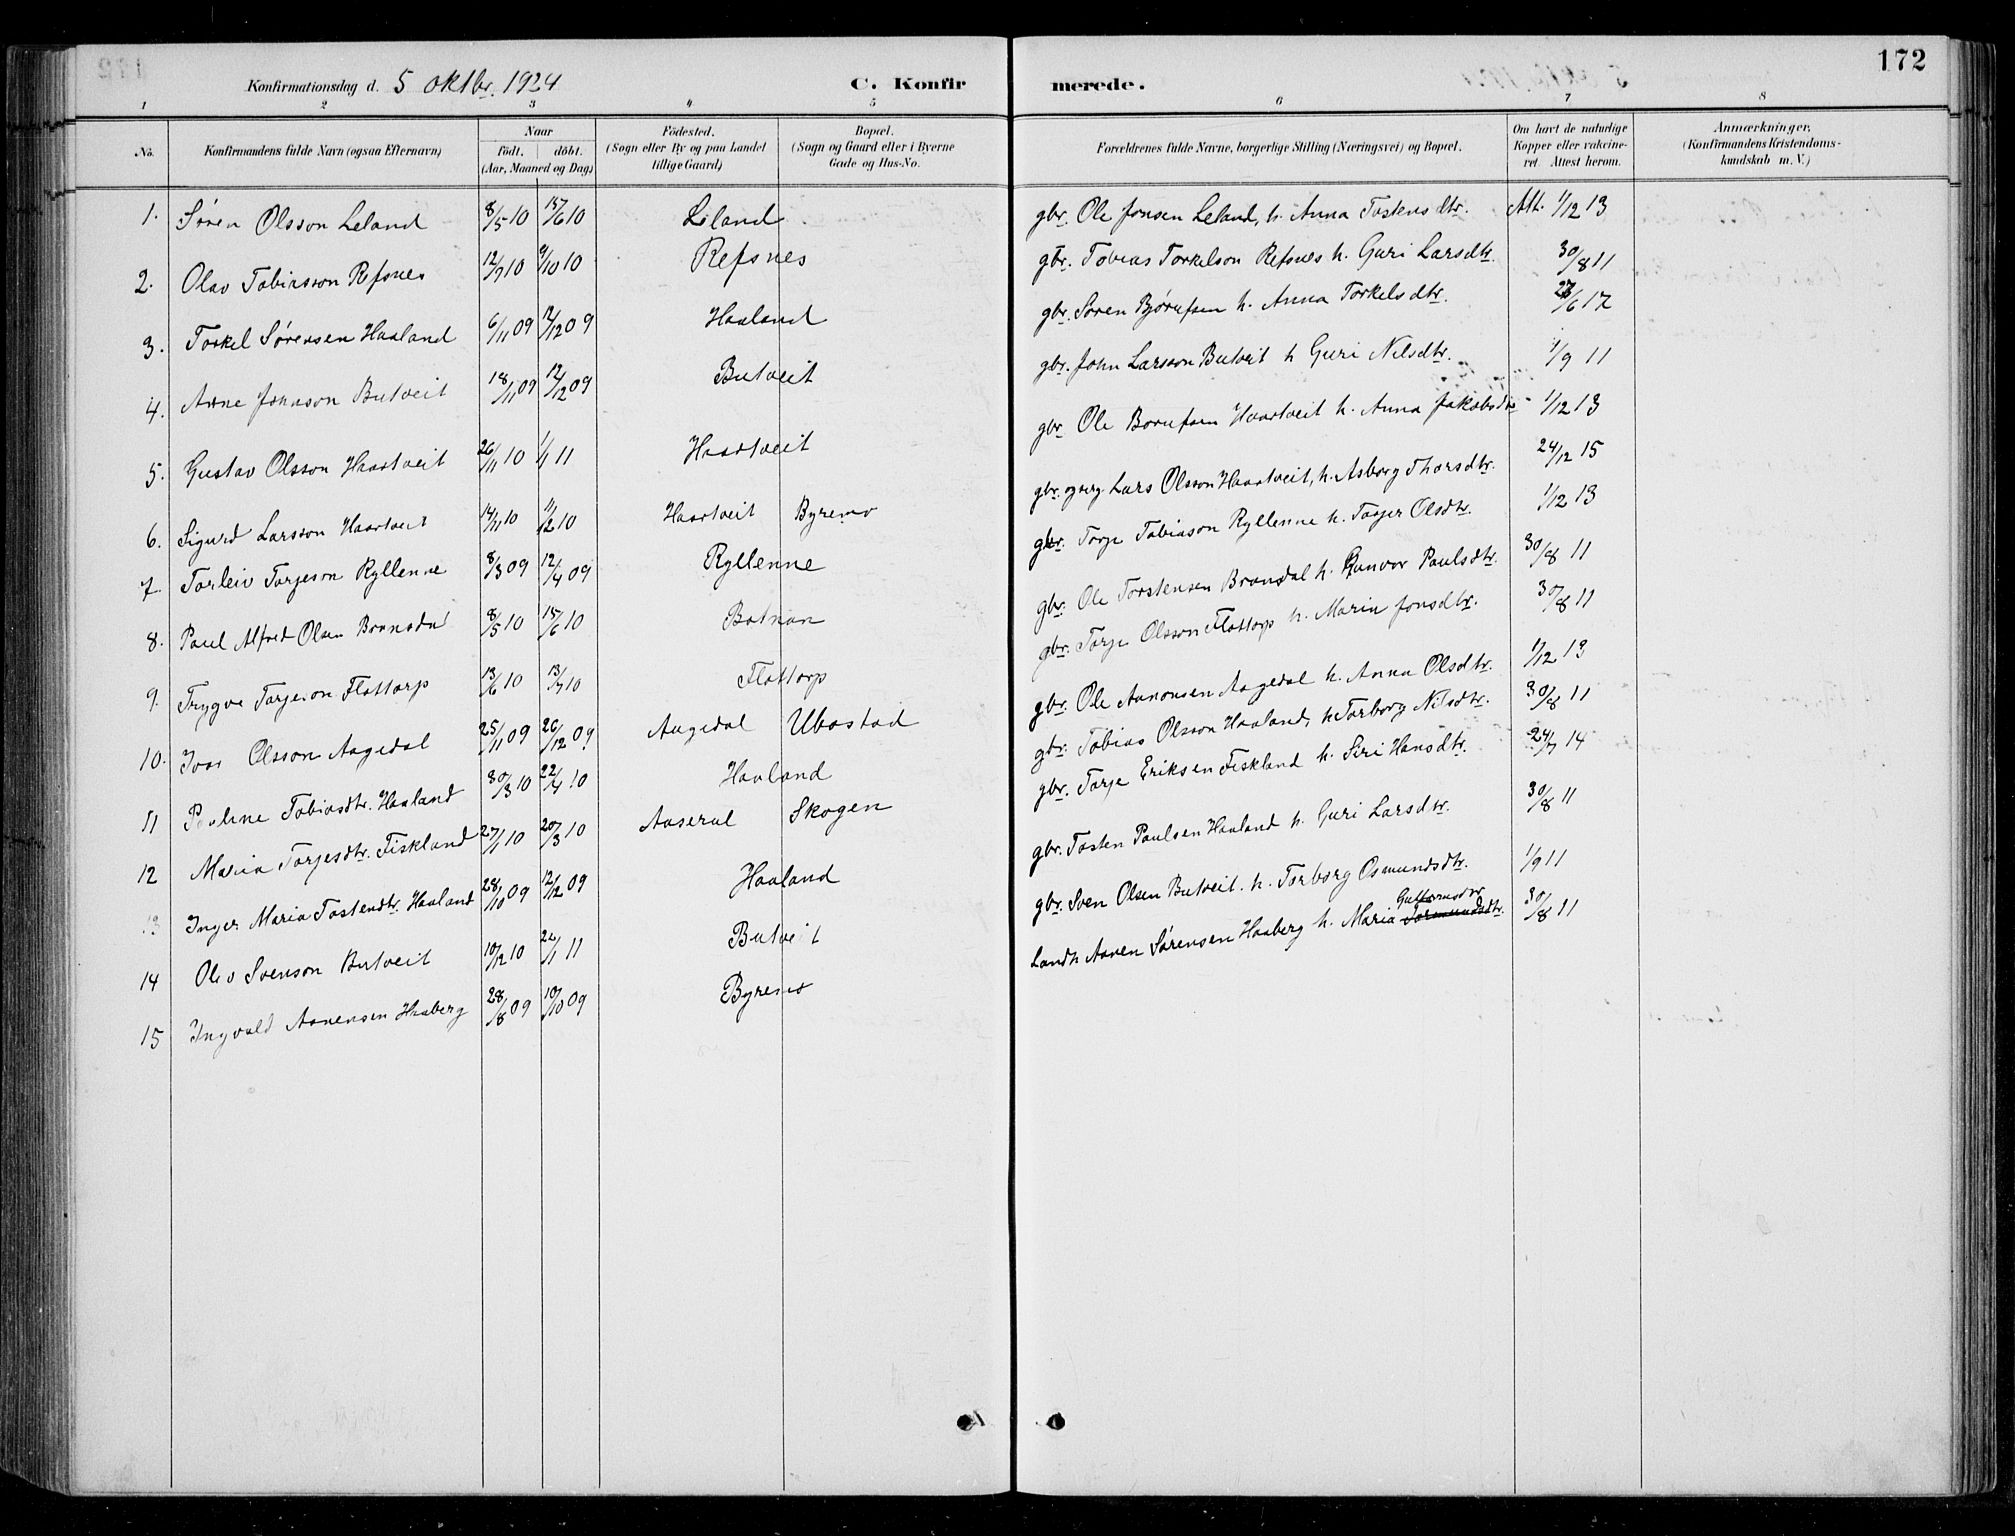 172
Konfirmationsdag d. 5 oktbr. 1924 C. Konfir merede.
1 2 3 4 5 6 7 8
No. Konfirmandens fulde Navn (ogsaa Efternavn) Naar födt. döbt. (Aar, Maaned og Dag) Födested. (Sogn eller By og paa Landet tillige Gaard) Bopæl. (Sogn og Gaard eller i Byerne Gade og Hus-No. Forældrenes fulde Navne, borgerlige Stilling (Næringsvei) og Bopæl. Om havt de naturlige Kopper eller vaccineret. Attest herom. Anmærkninger, (Konfirmandens Kristendomskundskab m. V.)
1. Søren Olsson Leland 8/5 10 15/6 10 Leland gbr. Ole Jonsen Leland, h. Anna Tostensdtr. Att. 1/12 13
2. Olav Tobiasson Refsnes 12/9 10 9/10 10 Refsnes gbr. Tobias Torkelson Refsnes h. Guri Larsdtr. 30/8 11
3. Torkel Sørensen Haaland 6/11 09 12/12 09 Haaland gbr. Søren Bjørufsen h. Anna Torkelsdtr. 6 17
4. Arne Johnson Butveit 18/11 09 12/12 09 Butveit gbr. John Larsson Butveit h Guri Nilsdtr. 1/9 11
5. Gustav Olsson Haartveit 26/11 10 1/1 11 Haartveit gbr Ole Borufsen Haartveit h. Anna Jakobsdtr 1/12 13
6. Sigurd Larsson Haartveit 14/11 10 11/12 10 Haartveit Byremo gbr. og Lars Olsson Haartveit, h. Asborg Tharsdtr. 24/12 15
7. Torleiv Torjeson Ryllenne 8/3 09 12/4 09 Ryllenne gbr. Torje Tobiasson Ryllenne h. Torjer Olsdtr. 1/12 13
8. Paul Alfred Olsen Bronsdal 8/5 10 15/6 10 Botnan gbr. Ole Torstensen Bronsdal h. Gunvor Paulsdtr. 30/8 11
9. Trygve Torjeson Flottorp 13/6 10 13/7 10 Flottorp gbr. Torje Olsson Flottorp h. Marin Jonsdtr. 30/8 11
10. Ivar Olsson Aagedal 25/11 09 26/12 09 Augedal Ubostad gbr. Ole Aanonsen Aagedal h. Anna Olsdtr. 1/12 13
11 Pauline Tobiasdtr. Haaland 30/3 10 22/4 10 Haaland gbr. Tobias Olsson Haaland, h. Torborg Nilsdtr. 30/8 11
12 Maria Torjesdtr. Fiskland 27/1 10 20/3 10 Aaseral Skogen gbr. Torje Eriksen Fiskland h. Siri Hansdtr. 24/7 14
13 Inger Maria Tostendtr. Haaland 28/10 09 12/12 09 Haaland gbr. Tosten Paulsen Haaland h. Guri Larsdtr. 30/8 11
14 Olav Svenson Butveit 10/12 10 24/1 11 Butveit gbr. Sven Olsen Butveit. h. Torborg Osmundsdtr. 1/9 11
15 Ingvald Aanensen Haaberg 28/8 09 10/10 09 Byremo Landh Aanen Sørensen Haaberg h. Maria Guttormsdtr 30/8 11